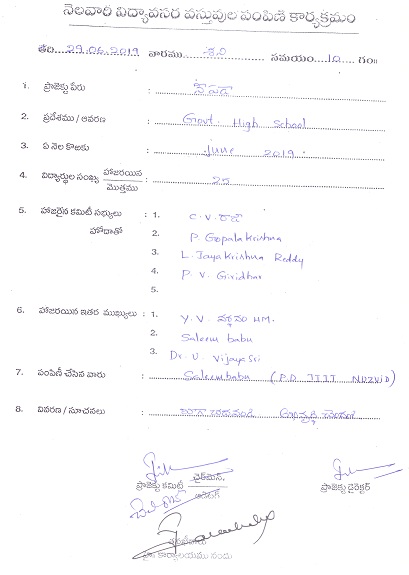 నెలవారీ విద్యావసర వస్తువుల పంపిణీ కార్యక్రమం
తేది: 29.06.2019 వారము శని సమయం 10 గం॥
1. ప్రాజెక్టు పేరు :
2. ప్రదేశము / ఆవరణ : Govt. High School
3. ఏ నెల కొఱకు : June 2019
4. విద్యార్థుల సంఖ్య హాజరయిన / మొత్తము : 25
5. హాజరైన కమిటీ సభ్యులు : 1. C.V. రాజీ
హోదాతో 2. P. Gopala Krishna
3. L. Jaya Krishna Reddy
4. P. V. Giridhar
5.
6. హాజరయిన ఇతర ముఖ్యులు : 1. Y.V. HM.
2. Saleem babu
3. Dr. V. Vijaya Sri
7. పంపిణీ చేసిన వారు : Saleembabu (P.D IIIT NUZVID)
8. వివరణ / సూచనలు : బాగా చదవండి
ప్రాజెక్టు కమిటీ ఛైర్మెన్,
ప్రాజెక్టు డైరెక్టర్